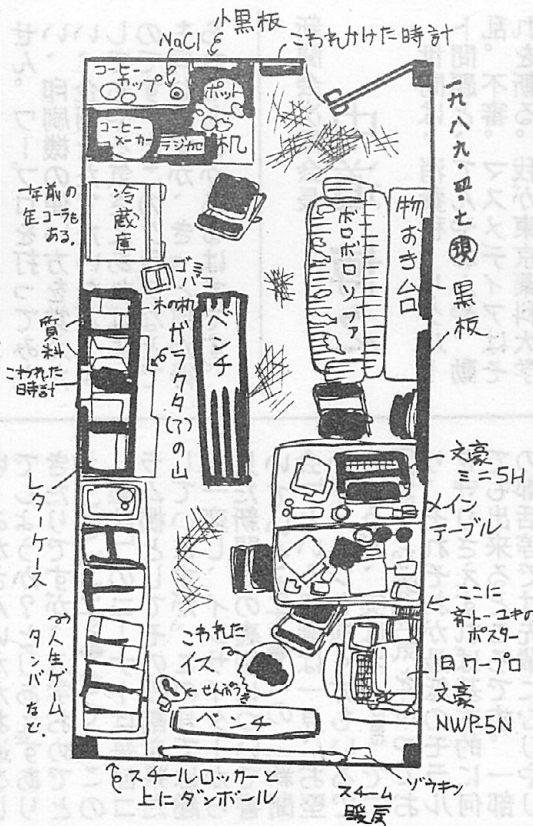 小黒板
NaCl
こわれかけた時計
コーヒー
カップ
ポット
コーヒー
メーカー
ラジカセ
机
一九八九・四・七 現
年前の
缶コーラも
ある.
冷蔵庫
ゴミ
バコ
物おき台
ボロボロソファ
黒板
木の机
質料
こわれた
時計
ガラクタ(?)の山
ベンチ
レターケース
文豪
ミニ5H
メイン
テーブル
ここに
斉トーユキの
ポスター
旧ワープロ
文豪
NWP-5N
人生ゲーム
タンバなど.
こわれた
イス
せんぷうき
ベンチ
スチールロッカーと
上にダンボール
スチーム
暖房
ゾウキン